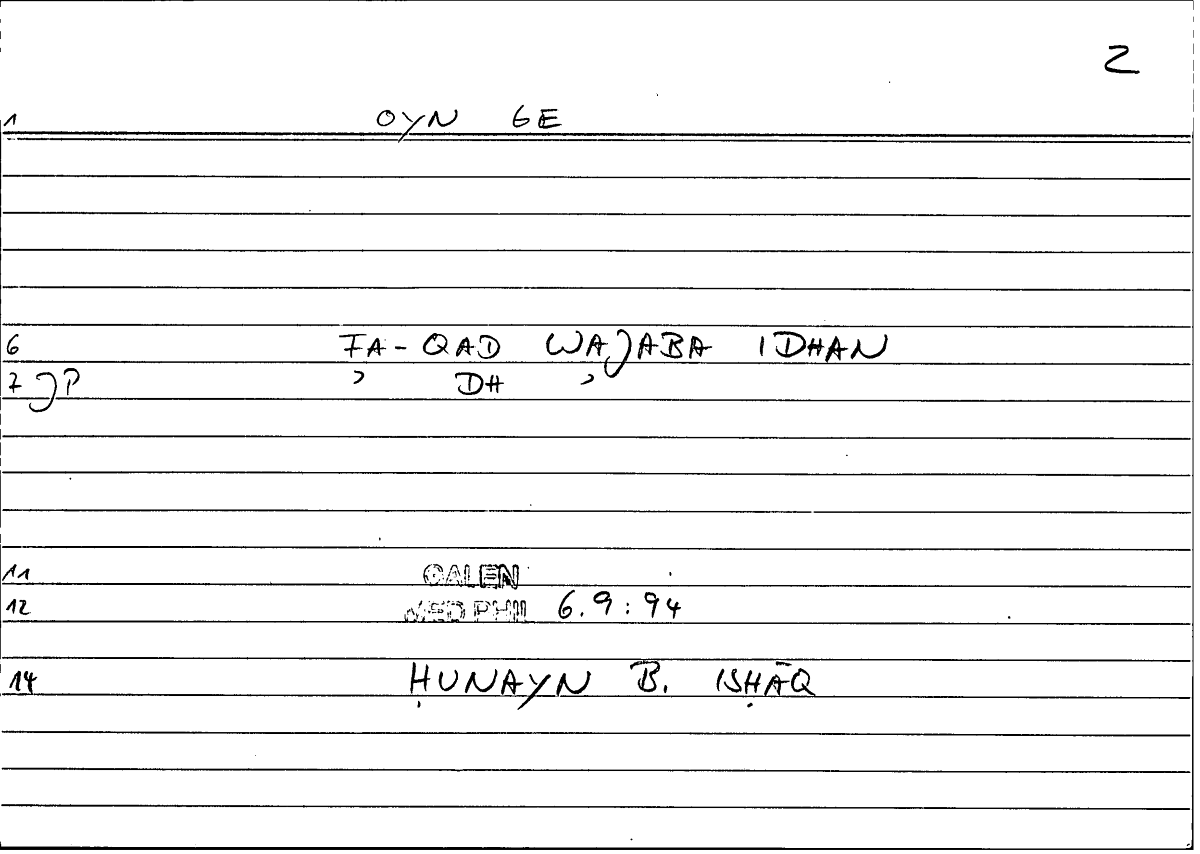 2
1 OYN GE
6 FA-QAD WAJABA IDHAN
7 JP ʾ DH ʾ
11 GALEN
12 MED PHIL 6.9:94
14 ḤUNAYN B. ISḤĀQ